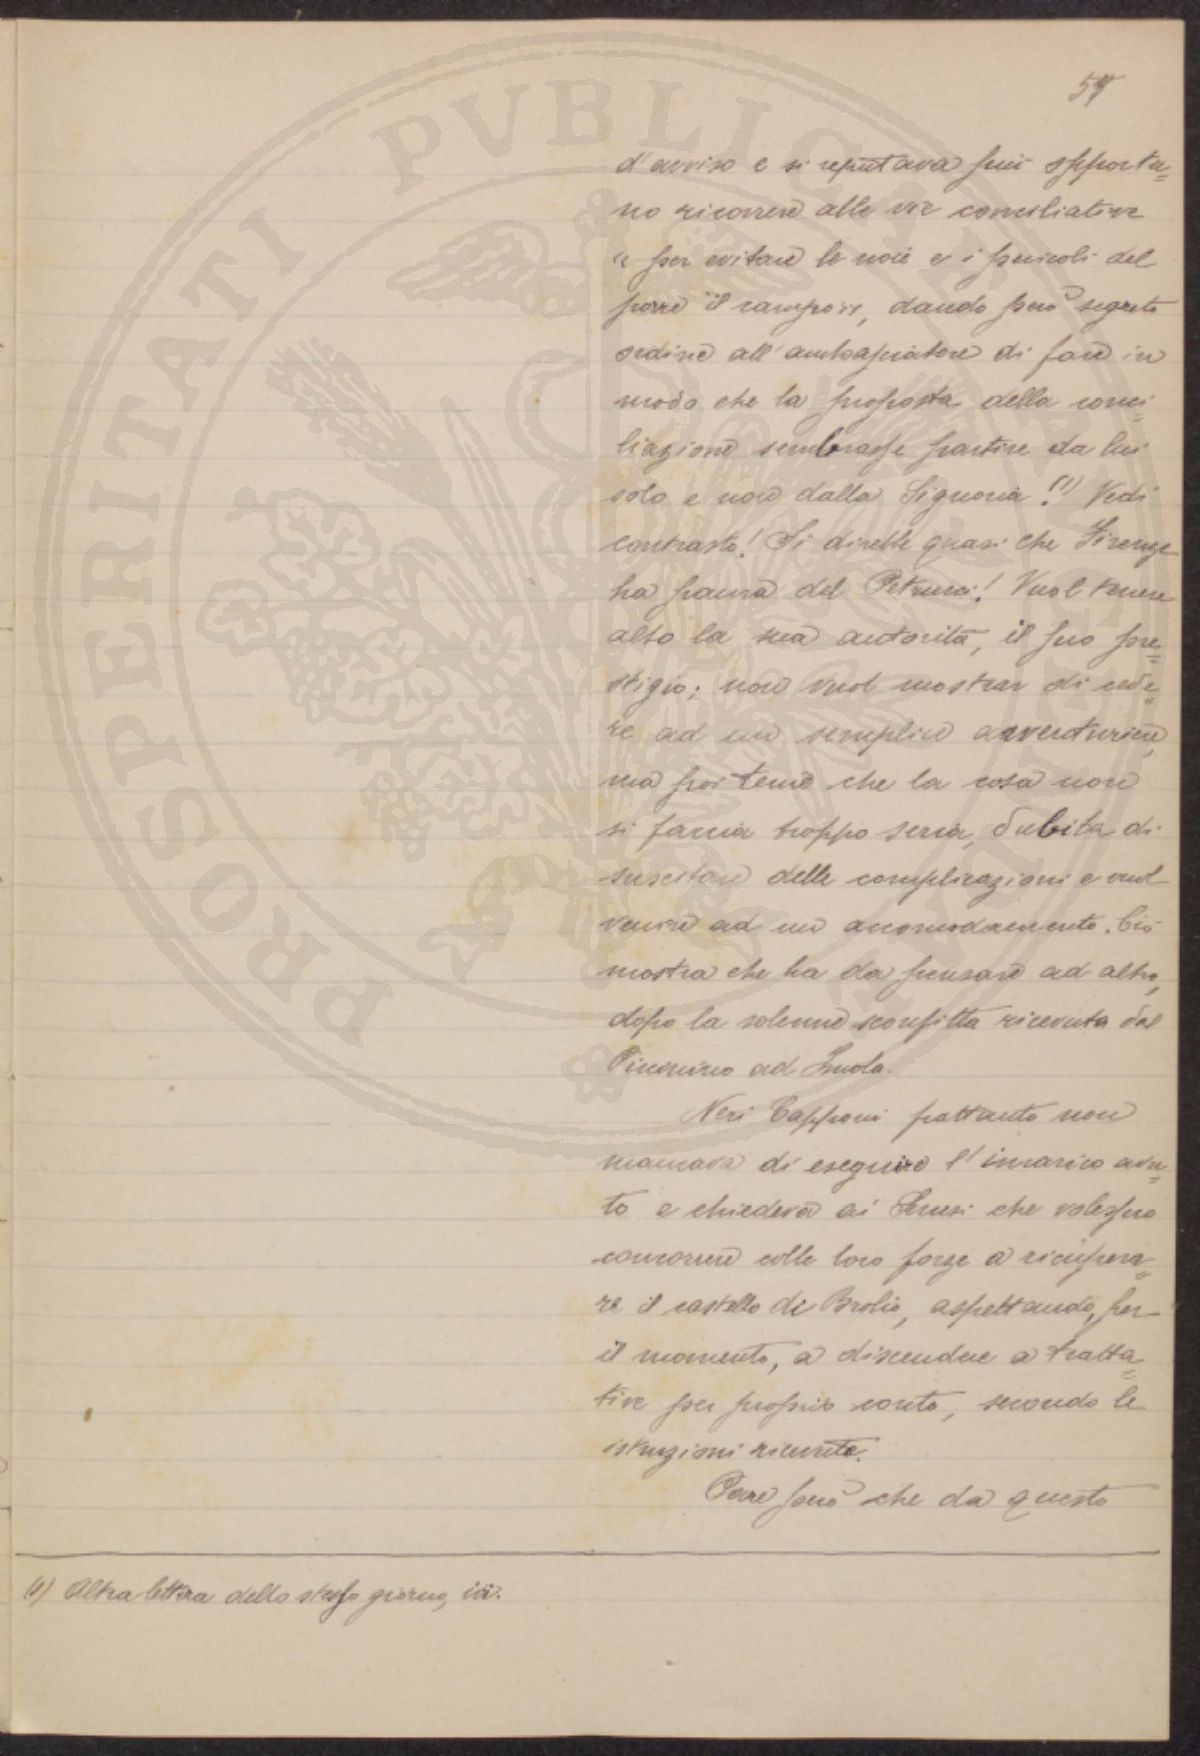 57
d'avviso e si reputava più opportu=
no ricorrere alle vie conciliative
« per evitare le noie e i pericoli del
porre il campo », dando però segreto
ordine all'ambasciatore di fare in
modo che la proposta della conci=
liazione sembrasse partire da lui
solo e non dalla Signoria!(1) Vedi
contrasto! Si direbbe quasi che Firenze
ha paura del Petrucci! Vuol tenere
alto la sua autorità, il suo pre=
stigio; non vuol mostrar di cede=
re ad un semplice avventuriere,
ma poi teme che la cosa non
si faccia troppo seria, dubita di
suscitare delle complicazioni e vuol
venire ad un accomodamento. Ciò
mostra che ha da pensare ad altro,
dopo la solenne sconfitta ricevuta dal
Piccinino ad Imola.
Neri Capponi pertanto non
mancava di eseguire l'incarico avu=
to e chiedeva ai Senesi che volessero
concorrere colle loro forze a ricupera=
re il castello di Brolio, aspettando, per
il momento, a discendere a tratta=
tive per proprio conto, secondo le
istruzioni ricevute.
Pare però che da questo
(1) Altra lettera dello stesso giorno, ivi.
PROSPERITATI PVBLICAE